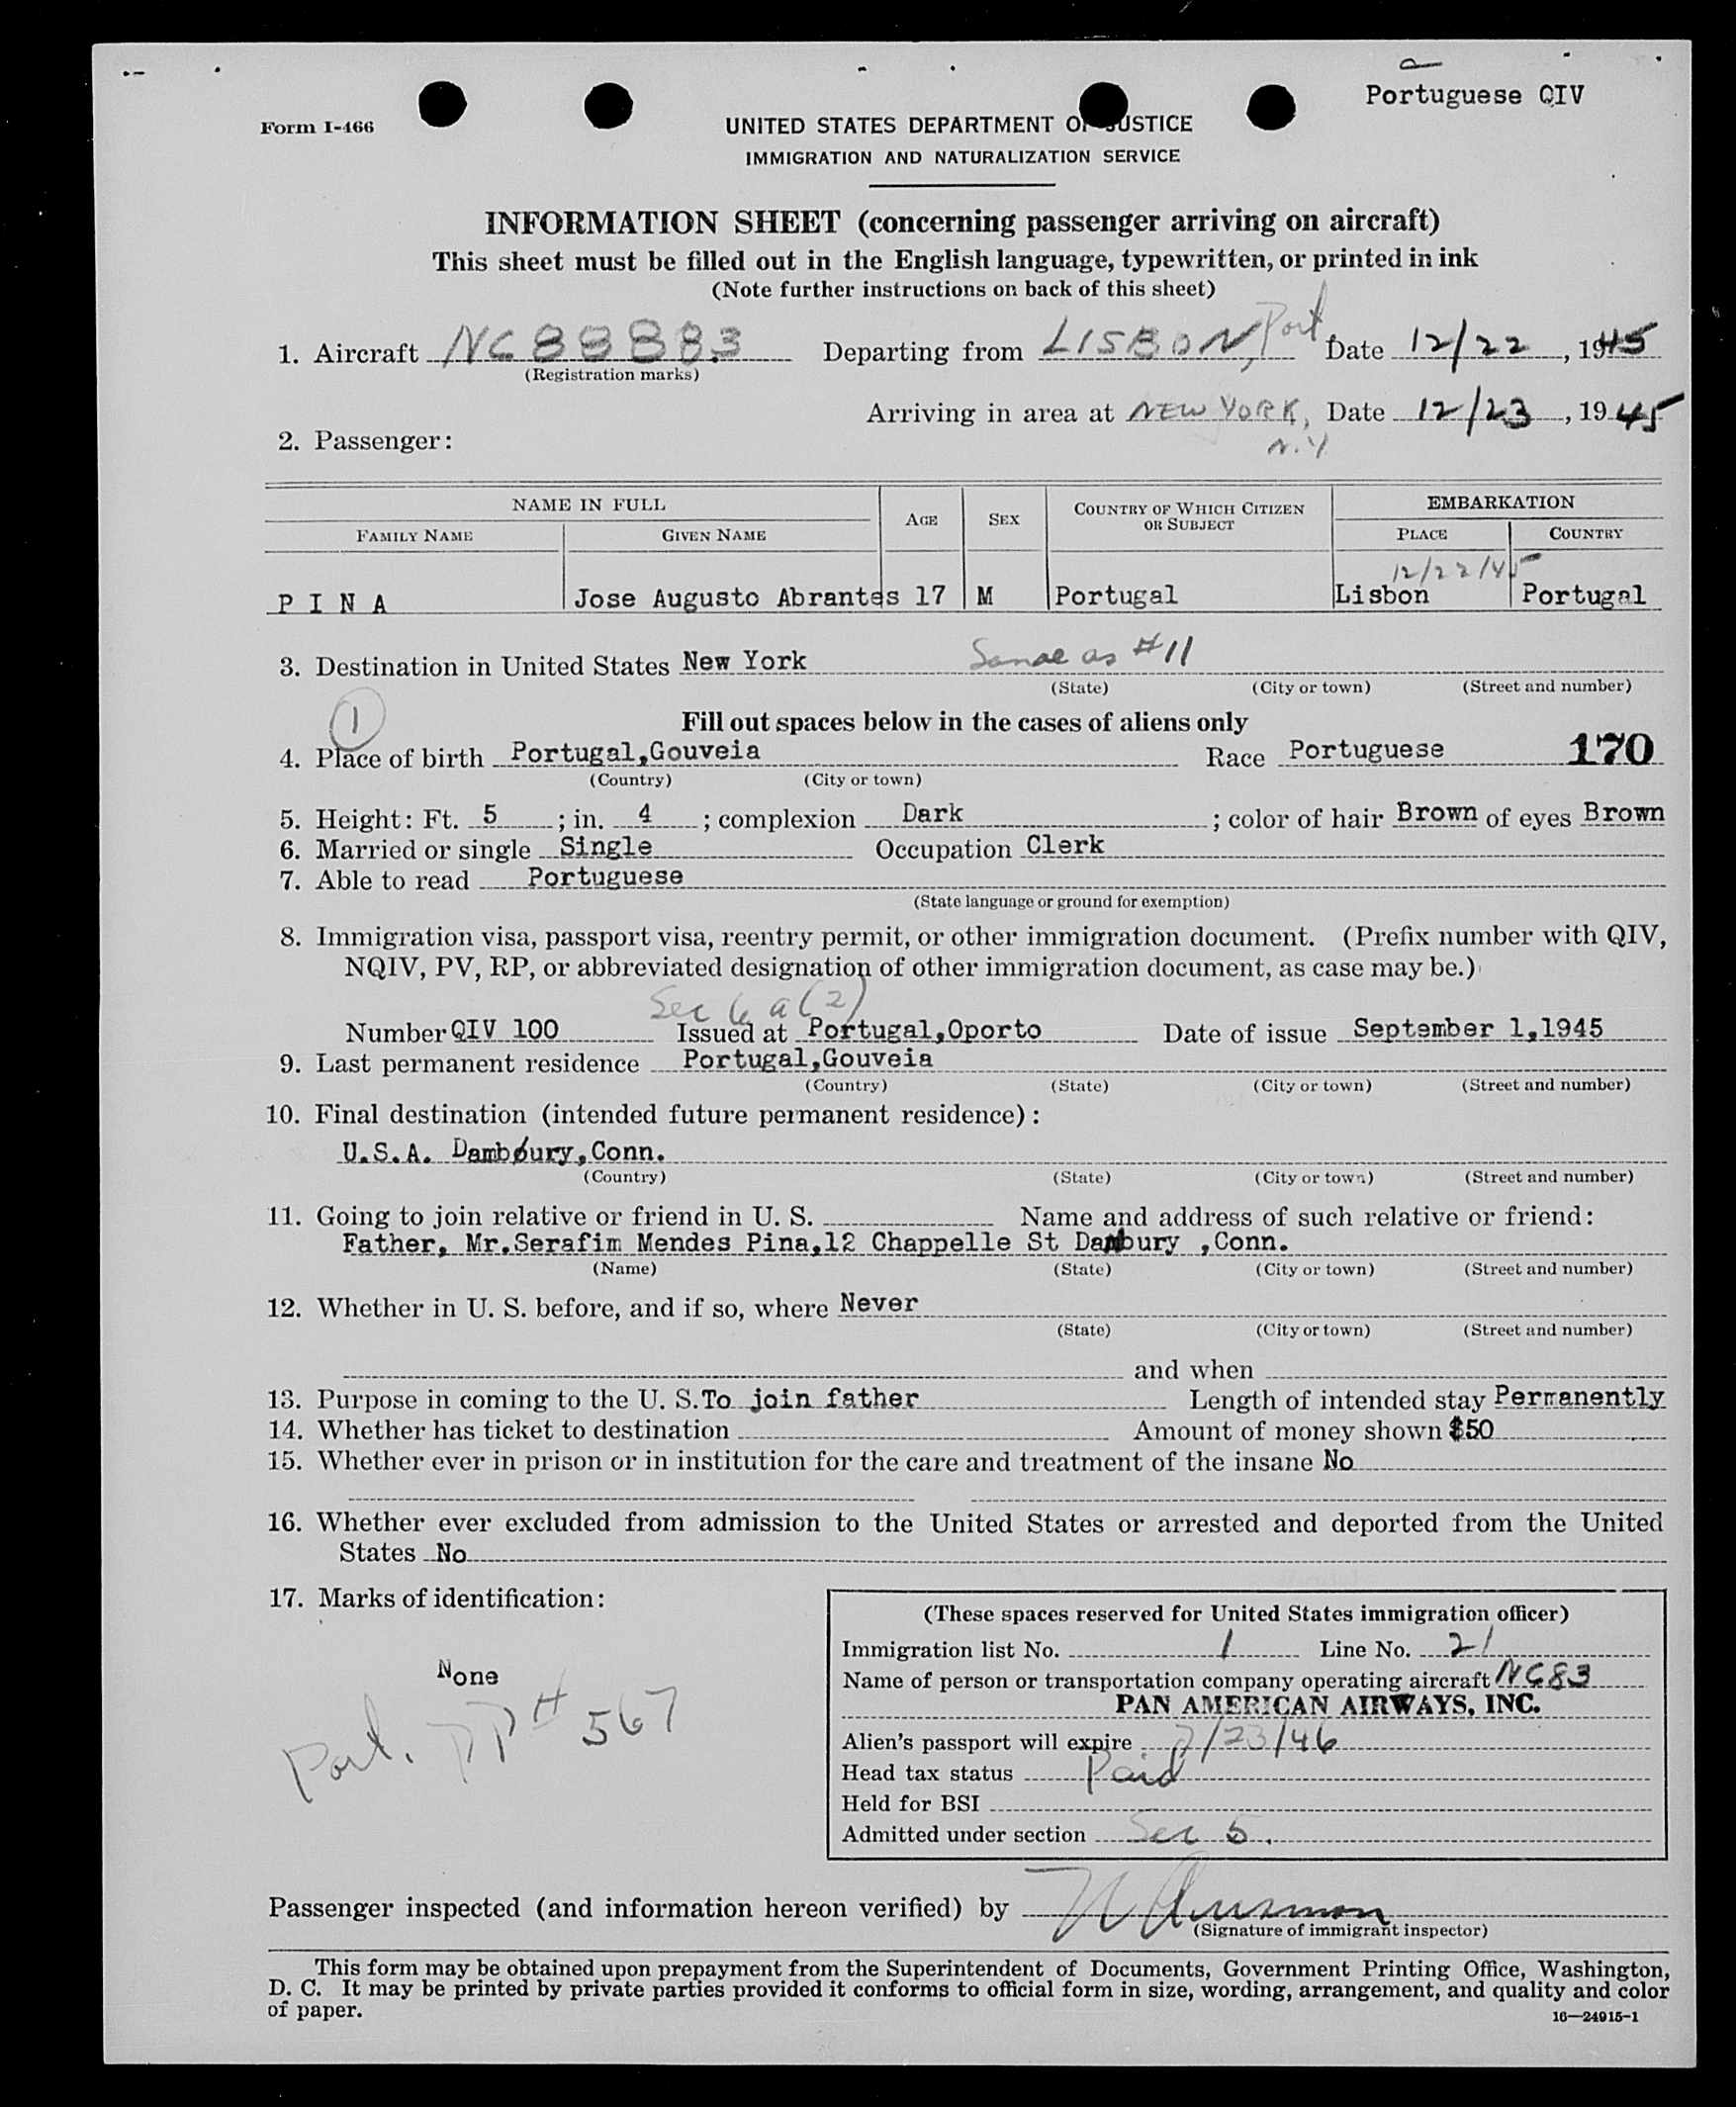 Portuguese QIV
Form I-466
UNITED STATES DEPARTMENT OF JUSTICE
IMMIGRATION AND NATURALIZATION SERVICE
INFORMATION SHEET (concerning passenger arriving on aircraft)
This sheet must be filled out in the English language, typewritten, or printed in ink
(Note further instructions on back of this sheet)
1. Aircraft NC 88883 Departing from LISBON, Port Date 12/22, 1945
(Registration marks)
Arriving in area at NEW YORK, N.Y. Date 12/23, 1945
2. Passenger:
NAME IN FULL AGE SEX COUNTRY OF WHICH CITIZEN OR SUBJECT EMBARKATION
FAMILY NAME GIVEN NAME PLACE COUNTRY
12/22/45
P I N A Jose Augusto Abrantes 17 M Portugal Lisbon Portugal
3. Destination in United States New York Same as #11
(State) (City or town) (Street and number)
1
Fill out spaces below in the cases of aliens only
4. Place of birth Portugal,Gouveia Race Portuguese 170
(Country) (City or town)
5. Height: Ft. 5; in. 4; complexion Dark; color of hair Brown of eyes Brown
6. Married or single Single Occupation Clerk
7. Able to read Portuguese
(State language or ground for exemption)
8. Immigration visa, passport visa, reentry permit, or other immigration document. (Prefix number with QIV,
NQIV, PV, RP, or abbreviated designation of other immigration document, as case may be.)
Sec 6 a (2)
Number QIV 100 Issued at Portugal,Oporto Date of issue September 1,1945
9. Last permanent residence Portugal,Gouveia
(Country) (State) (City or town) (Street and number)
10. Final destination (intended future permanent residence):
U.S.A. Dambury,Conn.
(Country) (State) (City or town) (Street and number)
11. Going to join relative or friend in U. S. Name and address of such relative or friend:
Father, Mr.Serafim Mendes Pina,12 Chappelle St Danbury ,Conn.
(Name) (State) (City or town) (Street and number)
12. Whether in U. S. before, and if so, where Never
(State) (City or town) (Street and number)
and when
13. Purpose in coming to the U. S. To join father Length of intended stay Permanently
14. Whether has ticket to destination Amount of money shown $50
15. Whether ever in prison or in institution for the care and treatment of the insane No
16. Whether ever excluded from admission to the United States or arrested and deported from the United
States No
17. Marks of identification:
None
Port. PP# 567
(These spaces reserved for United States immigration officer)
Immigration list No. 1 Line No. 21
Name of person or transportation company operating aircraft NC83
PAN AMERICAN AIRWAYS, INC.
Alien's passport will expire /23/46
Head tax status Paid
Held for BSI
Admitted under section Sec 5.
Passenger inspected (and information hereon verified) by
(Signature of immigrant inspector)
This form may be obtained upon prepayment from the Superintendent of Documents, Government Printing Office, Washington,
D. C. It may be printed by private parties provided it conforms to official form in size, wording, arrangement, and quality and color
of paper.
16—24915-1